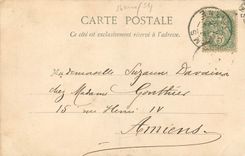 CARTE POSTALE
Ce côté est exclusivement réservé à l'adresse.
Mademoiselle Suzanne
chez Madame Gonthier
15 rue Henri IV
Amiens